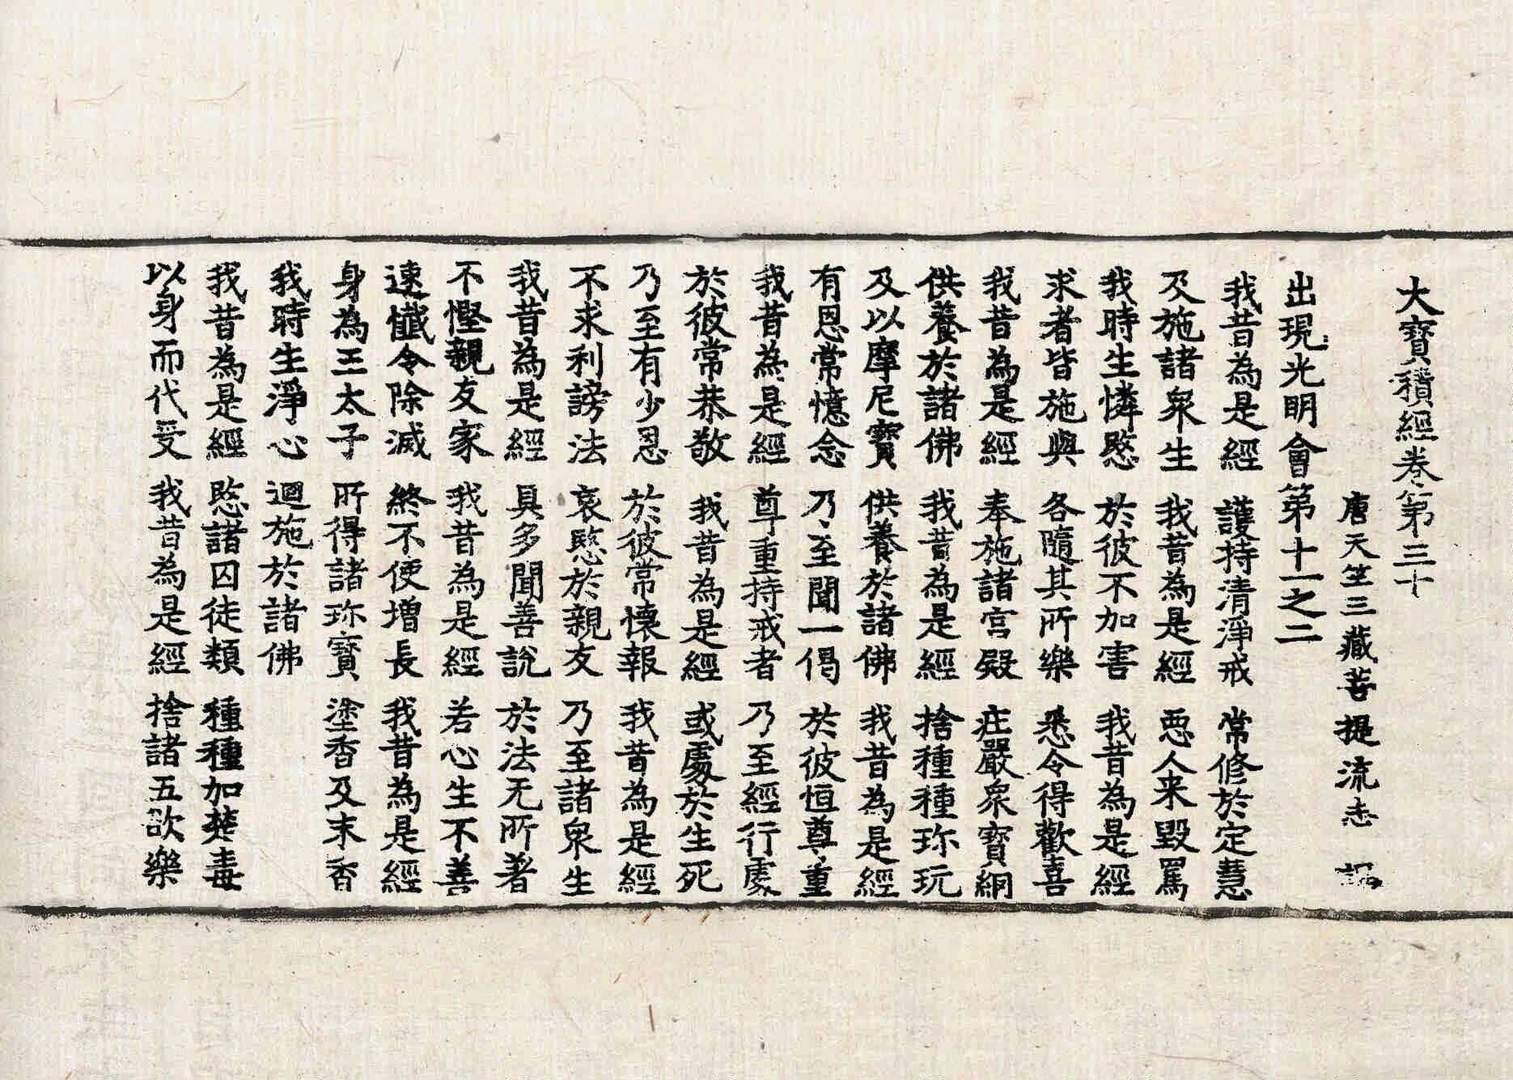 大寶積經卷第三十
唐天竺三藏菩提流志 詔
出現光明會第十一之二
我昔為是經 護持清淨戒 常修於定慧
及施諸衆生 我昔為是經 惡人来毀罵
我時生憐愍 於彼不加害 我昔為是經
求者皆施與 各隨其所樂 悉令得歡喜
我昔為是經 奉施諸宮殿 庄嚴衆寶網
供養於諸佛 我昔為是經 捨種種珎玩
及以摩尼寶 供養於諸佛 我昔為是經
有恩常憶念 乃至聞一偈 於彼恒尊重
我昔為是經 尊重持戒者 乃至經行處
於彼常恭敬 我昔為是經 或處於生死
乃至有少恩 於彼常懷報 我昔為是經
不求利謗法 哀愍於親友 乃至諸衆生
我昔為是經 具多聞善說 於法无所著
不慳親友家 我昔為是經 若心生不善
速懺令除滅 終不便增長 我昔為是經
身為王太子 所得諸珎寶 塗香及末香
我時生淨心 迴施於諸佛
我昔為是經 愍諸囚徒類 種種加楚毒
以身而代受 我昔為是經 捨諸五欲樂